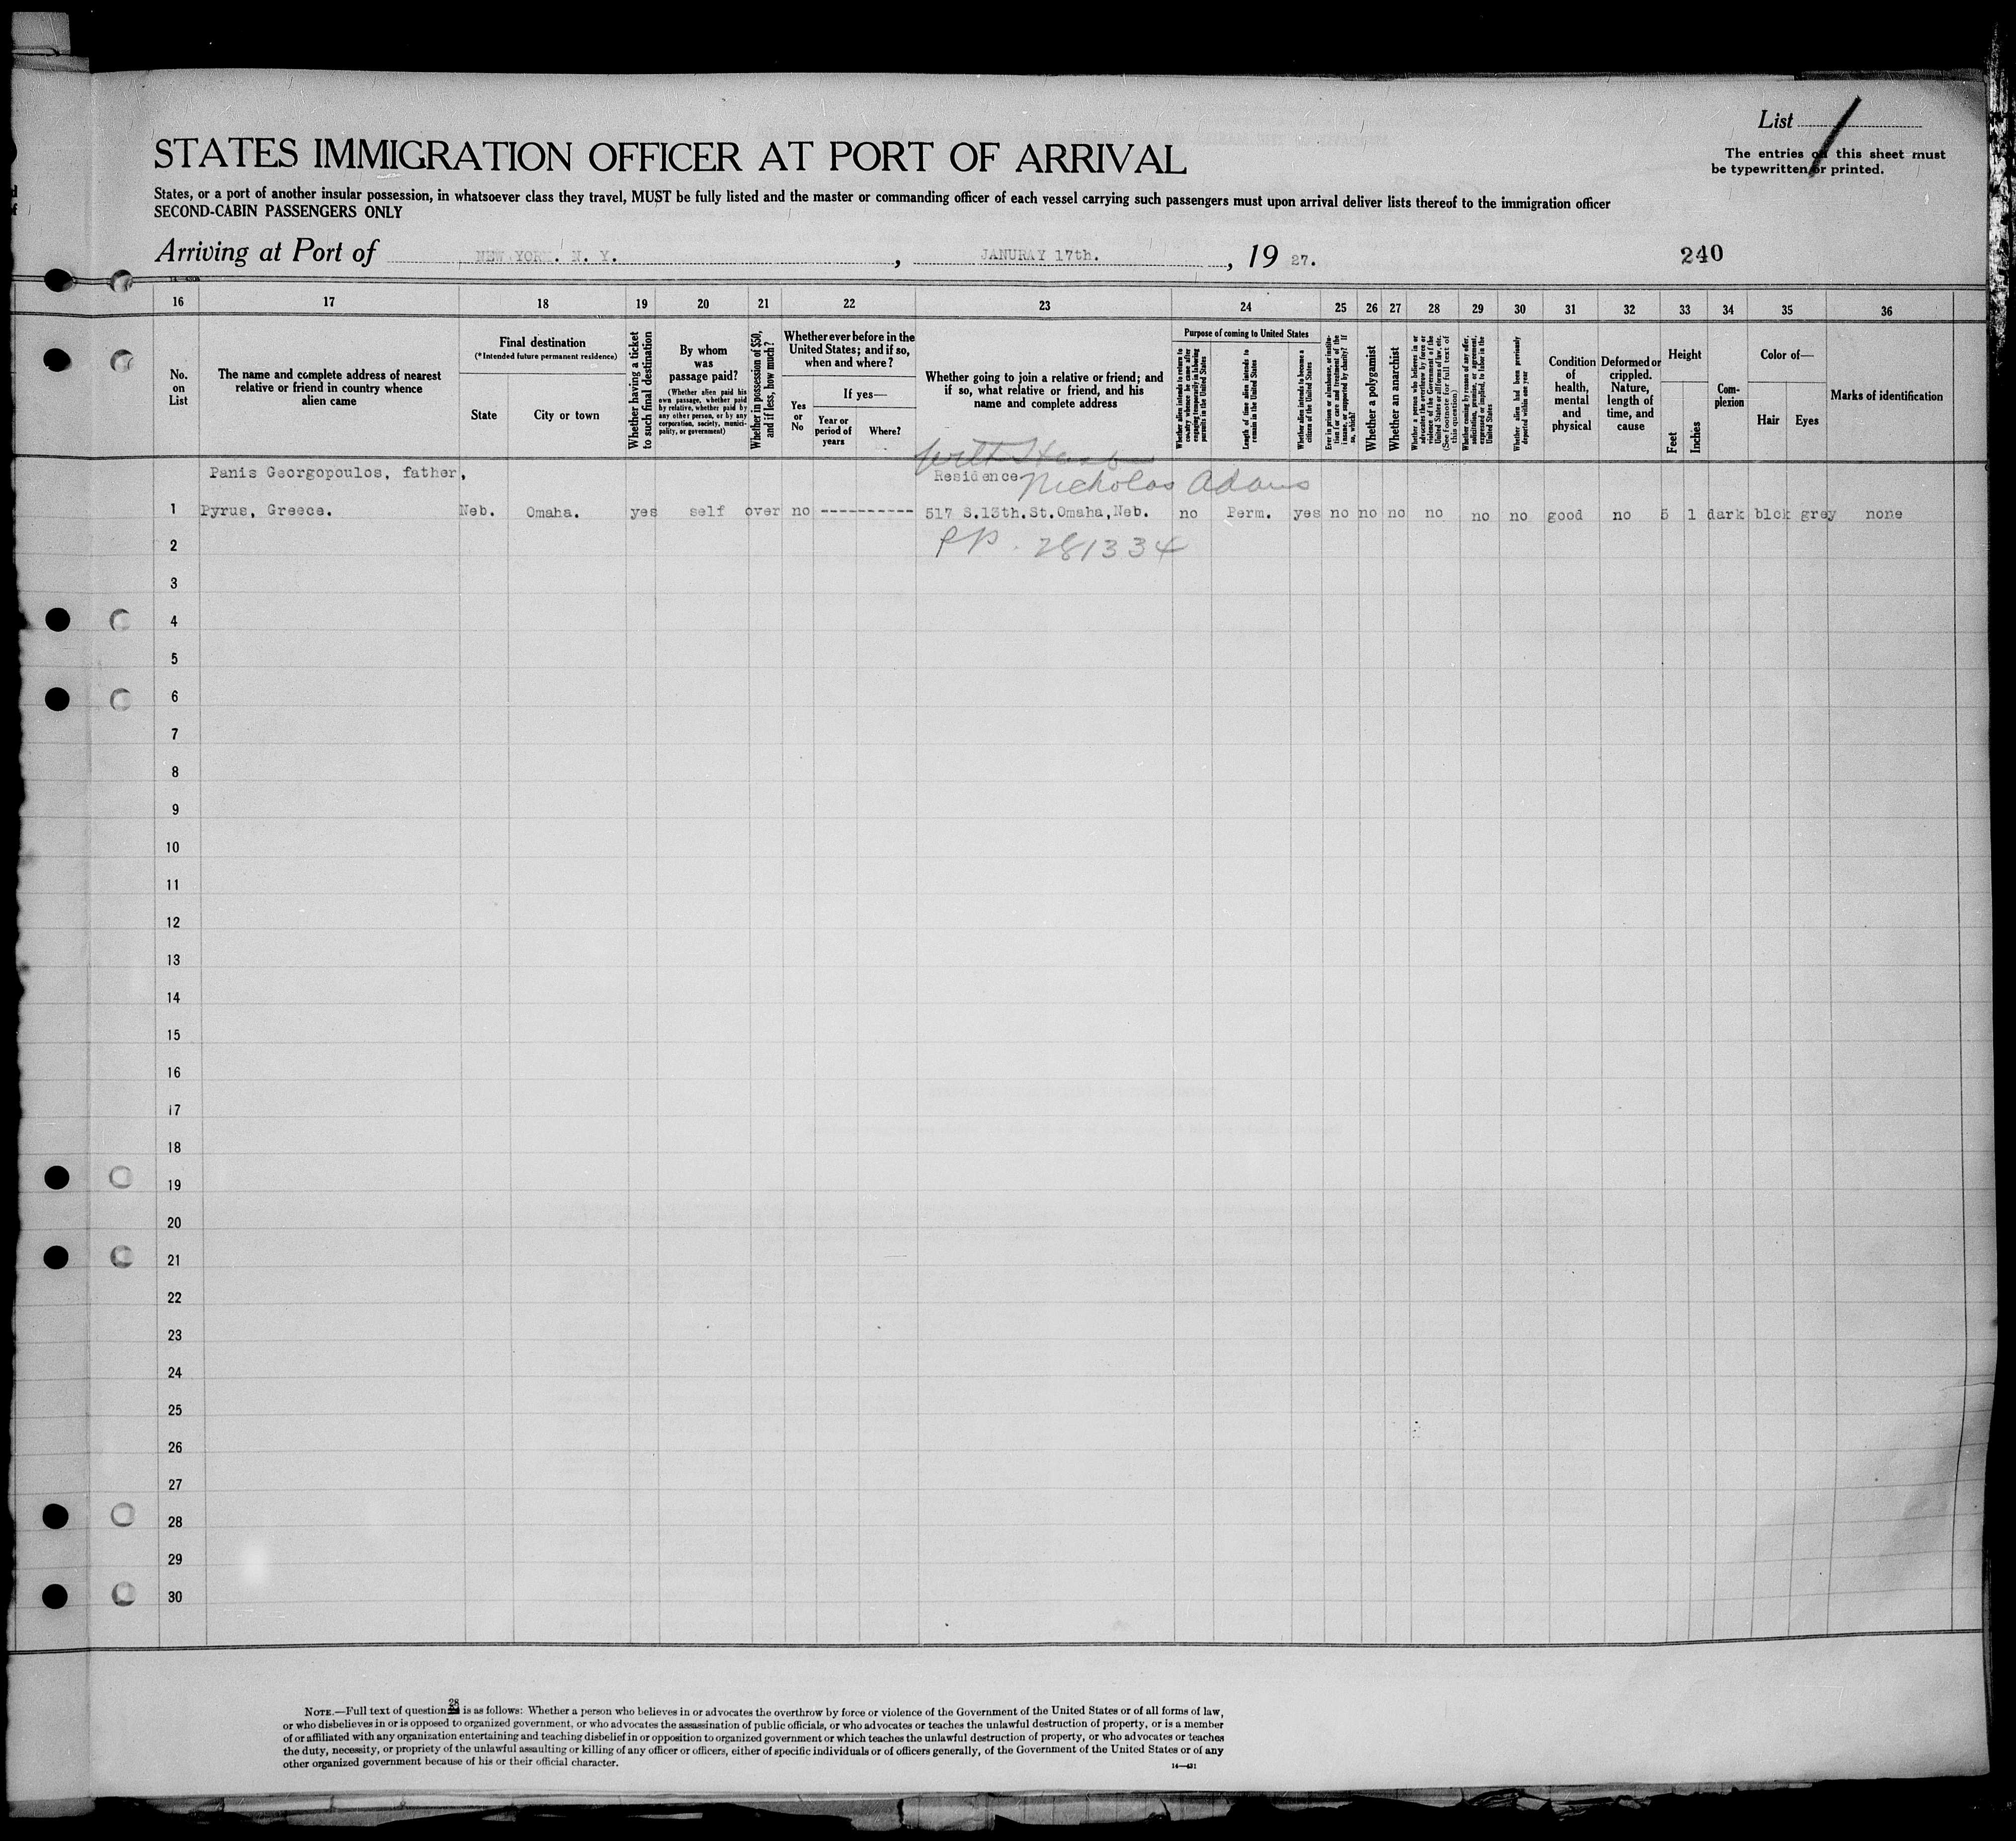 List /
The entries on this sheet must
be typewritten or printed.
STATES IMMIGRATION OFFICER AT PORT OF ARRIVAL
States, or a port of another insular possession, in whatsoever class they travel, MUST be fully listed and the master or commanding officer of each vessel carrying such passengers must upon arrival deliver lists thereof to the immigration officer
SECOND-CABIN PASSENGERS ONLY
Arriving at Port of NEW YORK. N. Y. , JANURAY 17th. , 19 27.
240
16 17 18 19 20 21 22 23 24 25 26 27 28 29 30 31 32 33 34 35 36
No. on List
The name and complete address of nearest relative or friend in country whence alien came
Final destination
(*Intended future permanent residence)
State
City or town
Whether having a ticket to such final destination
By whom was passage paid?
(Whether alien paid his own passage, whether paid by relative, whether paid by any other person, or by any corporation, society, municipality, or government)
Whether in possession of $50, and if less, how much?
Whether ever before in the United States; and if so, when and where?
Yes or No
If yes—
Year or period of years
Where?
Whether going to join a relative or friend; and if so, what relative or friend, and his name and complete address
Purpose of coming to United States
Whether alien intends to return to country whence he came after engaging temporarily in laboring pursuits in the United States
Length of time alien intends to remain in the United States
Whether alien intends to become a citizen of the United States
Ever in prison or almshouse, or institution for care and treatment of the insane, or supported by charity? If so, which?
Whether a polygamist
Whether an anarchist
Whether a person who believes in or advocates the overthrow by force or violence of the Government of the United States or all forms of law, etc. (See footnote for full text of this question)
Whether coming by reason of any offer, solicitation, promise, or agreement, expressed or implied, to labor in the United States
Whether alien had been previously deported within one year
Condition of health, mental and physical
Deformed or crippled. Nature, length of time, and cause
Height
Feet
Inches
Com-
plexion
Color of—
Hair
Eyes
Marks of identification
Panis Georgopoulos, father,
Residence Nicholas Adams
1 Pyrus, Greece. Neb. Omaha. yes self over no ---------- 517 S.13th.St.Omaha,Neb. no Perm. yes no no no no no no good no 5 1 dark blck grey none
PP. 281334
2
3
4
5
6
7
8
9
10
11
12
13
14
15
16
17
18
19
20
21
22
23
24
25
26
27
28
29
30
28
NOTE.—Full text of question is as follows: Whether a person who believes in or advocates the overthrow by force or violence of the Government of the United States or of all forms of law,
or who disbelieves in or is opposed to organized government, or who advocates the assassination of public officials, or who advocates or teaches the unlawful destruction of property, or is a member
of or affiliated with any organization entertaining and teaching disbelief in or opposition to organized government or which teaches the unlawful destruction of property, or who advocates or teaches
the duty, necessity, or propriety of the unlawful assaulting or killing of any officer or officers, either of specific individuals or of officers generally, of the Government of the United States or of any
other organized government because of his or their official character.
14—431